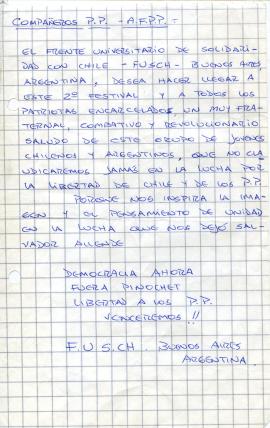 COMPAÑEROS P.P. - A.F.P.P. -
EL FRENTE UNIVERSITARIO DE SOLIDARI-
DAD CON CHILE - FUSCH - BUENOS AIRES
ARGENTINA, DESEA HACER LLEGAR A
ESTE 2º FESTIVAL Y A TODOS LOS
PATRIOTAS ENCARCELADOS, UN MUY FRA-
TERNAL, COMBATIVO Y REVOLUCIONARIO
SALUDO DE ESTE GRUPO DE JOVENES
CHILENOS Y ARGENTINOS, QUE NO CLA
UDICAREMOS JAMAS EN LA LUCHA POR
LA LIBERTAD DE CHILE Y DE LOS P.P.
PORQUE NOS INSPIRA LA IMA-
GEN Y EL PENSAMIENTO DE UNIDAD
EN LA LUCHA QUE NOS DEJÓ SAL-
VADOR ALLENDE
DEMOCRACIA AHORA
FUERA PINOCHET
LIBERTAD A LOS P.P.
VENCEREMOS!!
F.U.S.CH. BUENOS AIRES
ARGENTINA.